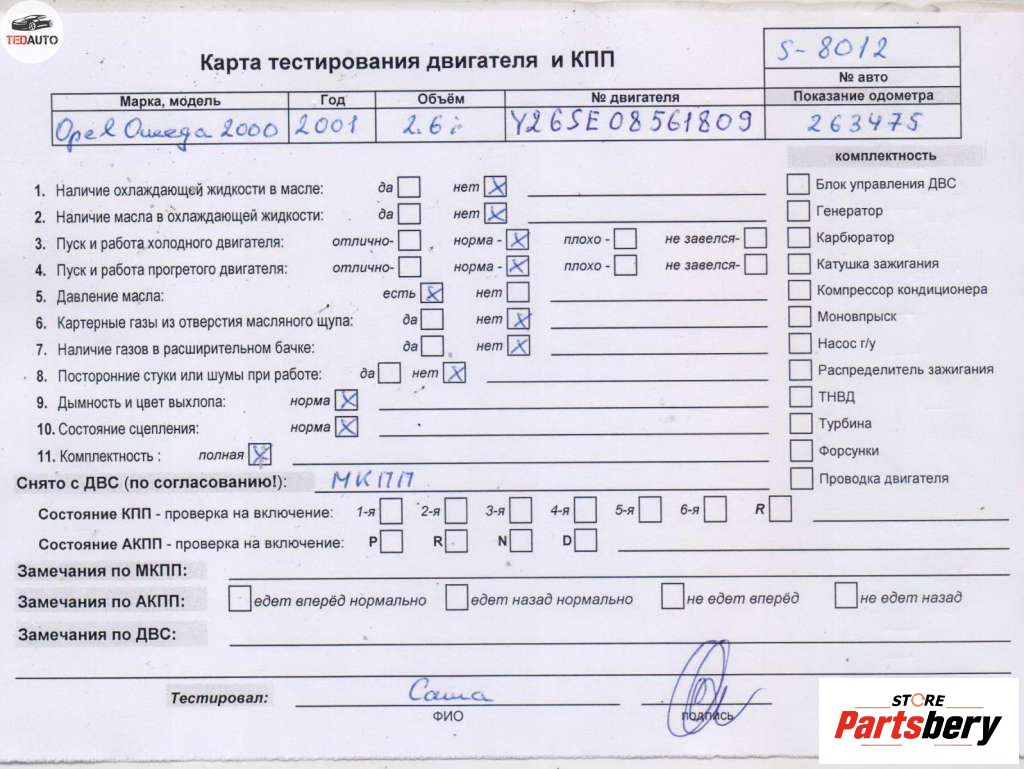 TEDAUTO
Карта тестирования двигателя и КПП
S-8012
№ авто
Марка, модель Год Объём № двигателя Показание одометра
Opel Omega 2000 2001 2.6i Y26SE08561809 263475
комплектность
1. Наличие охлаждающей жидкости в масле: да нет X
Блок управления ДВС
2. Наличие масла в охлаждающей жидкости: да нет X
Генератор
3. Пуск и работа холодного двигателя: отлично- норма - X плохо - не завелся-
Карбюратор
4. Пуск и работа прогретого двигателя: отлично- норма - X плохо - не завелся-
Катушка зажигания
5. Давление масла: есть X нет
Компрессор кондиционера
6. Картерные газы из отверстия масляного щупа: да нет X
Моновпрыск
7. Наличие газов в расширительном бачке: да нет X
Насос г/у
8. Посторонние стуки или шумы при работе: да нет X
Распределитель зажигания
9. Дымность и цвет выхлопа: норма X
ТНВД
10. Состояние сцепления: норма X
Турбина
11. Комплектность : полная X
Форсунки
Снято с ДВС (по согласованию!): МКПП
Проводка двигателя
Состояние КПП - проверка на включение: 1-я 2-я 3-я 4-я 5-я 6-я R
Состояние АКПП - проверка на включение: P R N D
Замечания по МКПП:
Замечания по АКПП: едет вперёд нормально едет назад нормально не едет вперёд не едет назад
Замечания по ДВС:
Тестировал: Саша
ФИО подпись
STORE
Partsbery